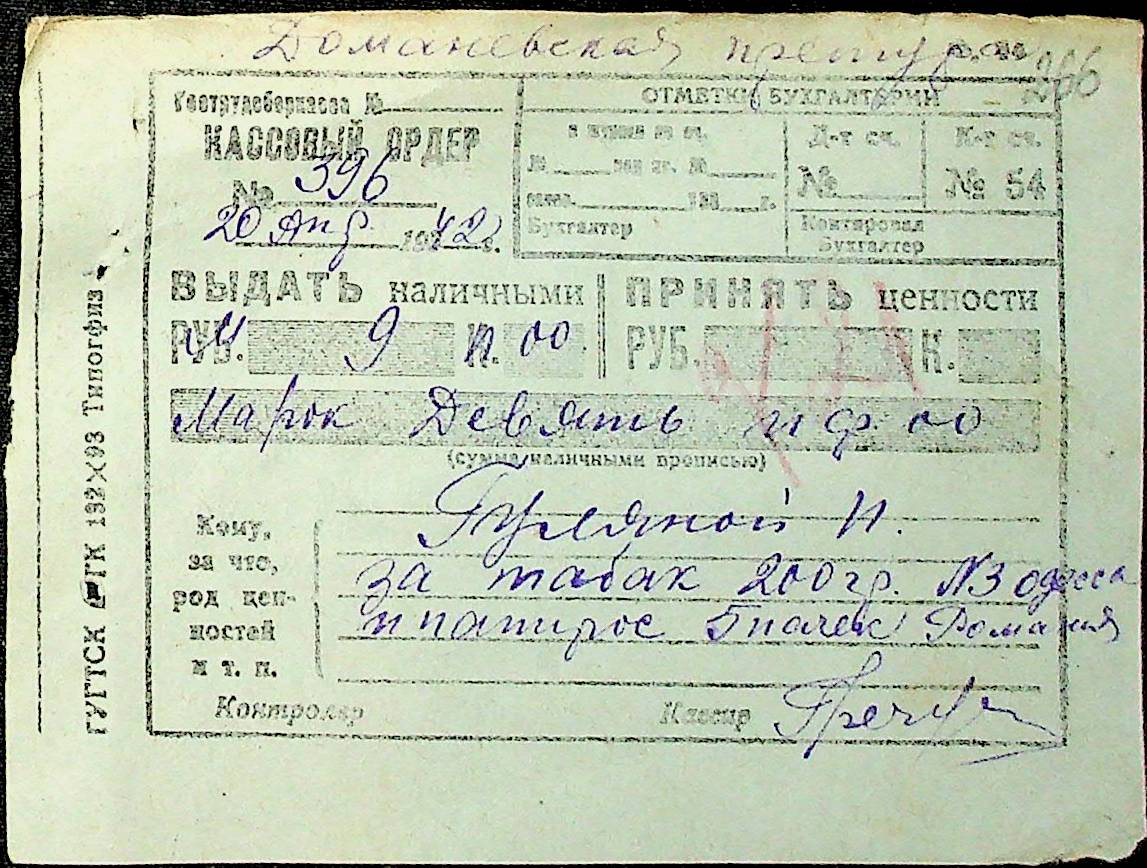 Доманевская претура
266
Гострудсберкасса №
КАССОВЫЙ ОРДЕР
№ 396
20 Апр. 1942 г.
ОТМЕТКИ БУХГАЛТЕРИИ
№
Бухгалтер
Д-т сч.
№
К-т сч.
№ 54
Контировал
Бухгалтер
ВЫДАТЬ наличными
РУБ. М 9 К. п. 00
ПРИНЯТЬ ценности
РУБ. К.
Марок Девять пф 00
(сумма наличными прописью)
Кому,
за что,
род цен-
ностей
и т. п.
Гуляной Н.
за табак 200 гр. N3 одесса
и папирос 5 пачек Романия
Контролер
Кассир
ГУГТСК ГК 192×93 Типогфиз